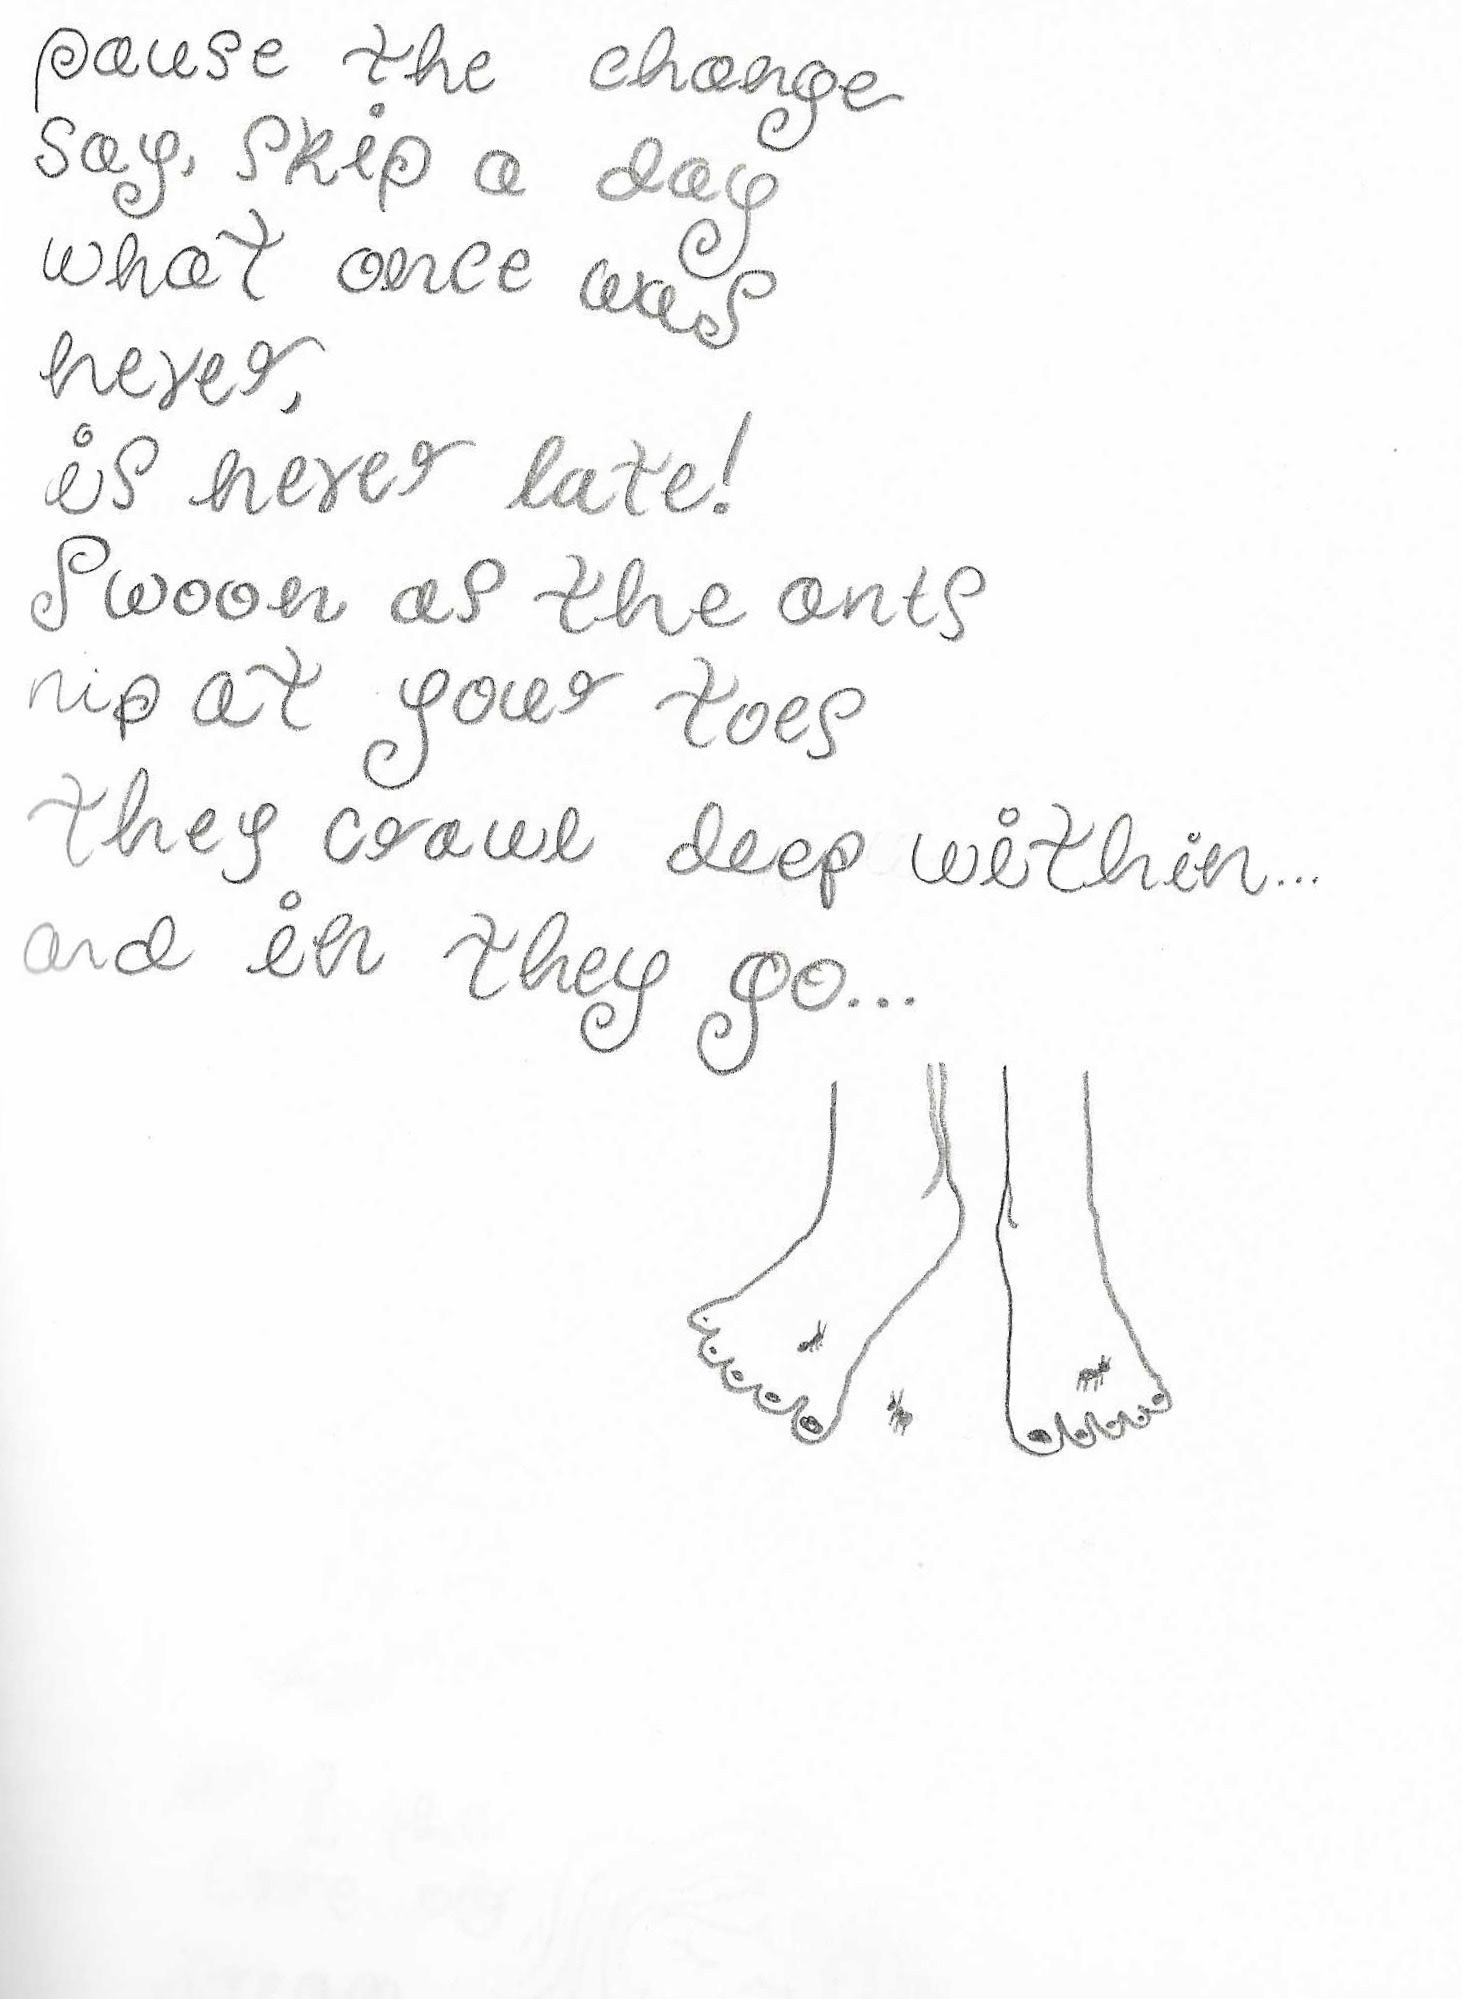 pause the change
say, skip a day
what once was
never,
is never late!
Swoon as the ants
nip at your toes
they crawl deep within...
and in they go...